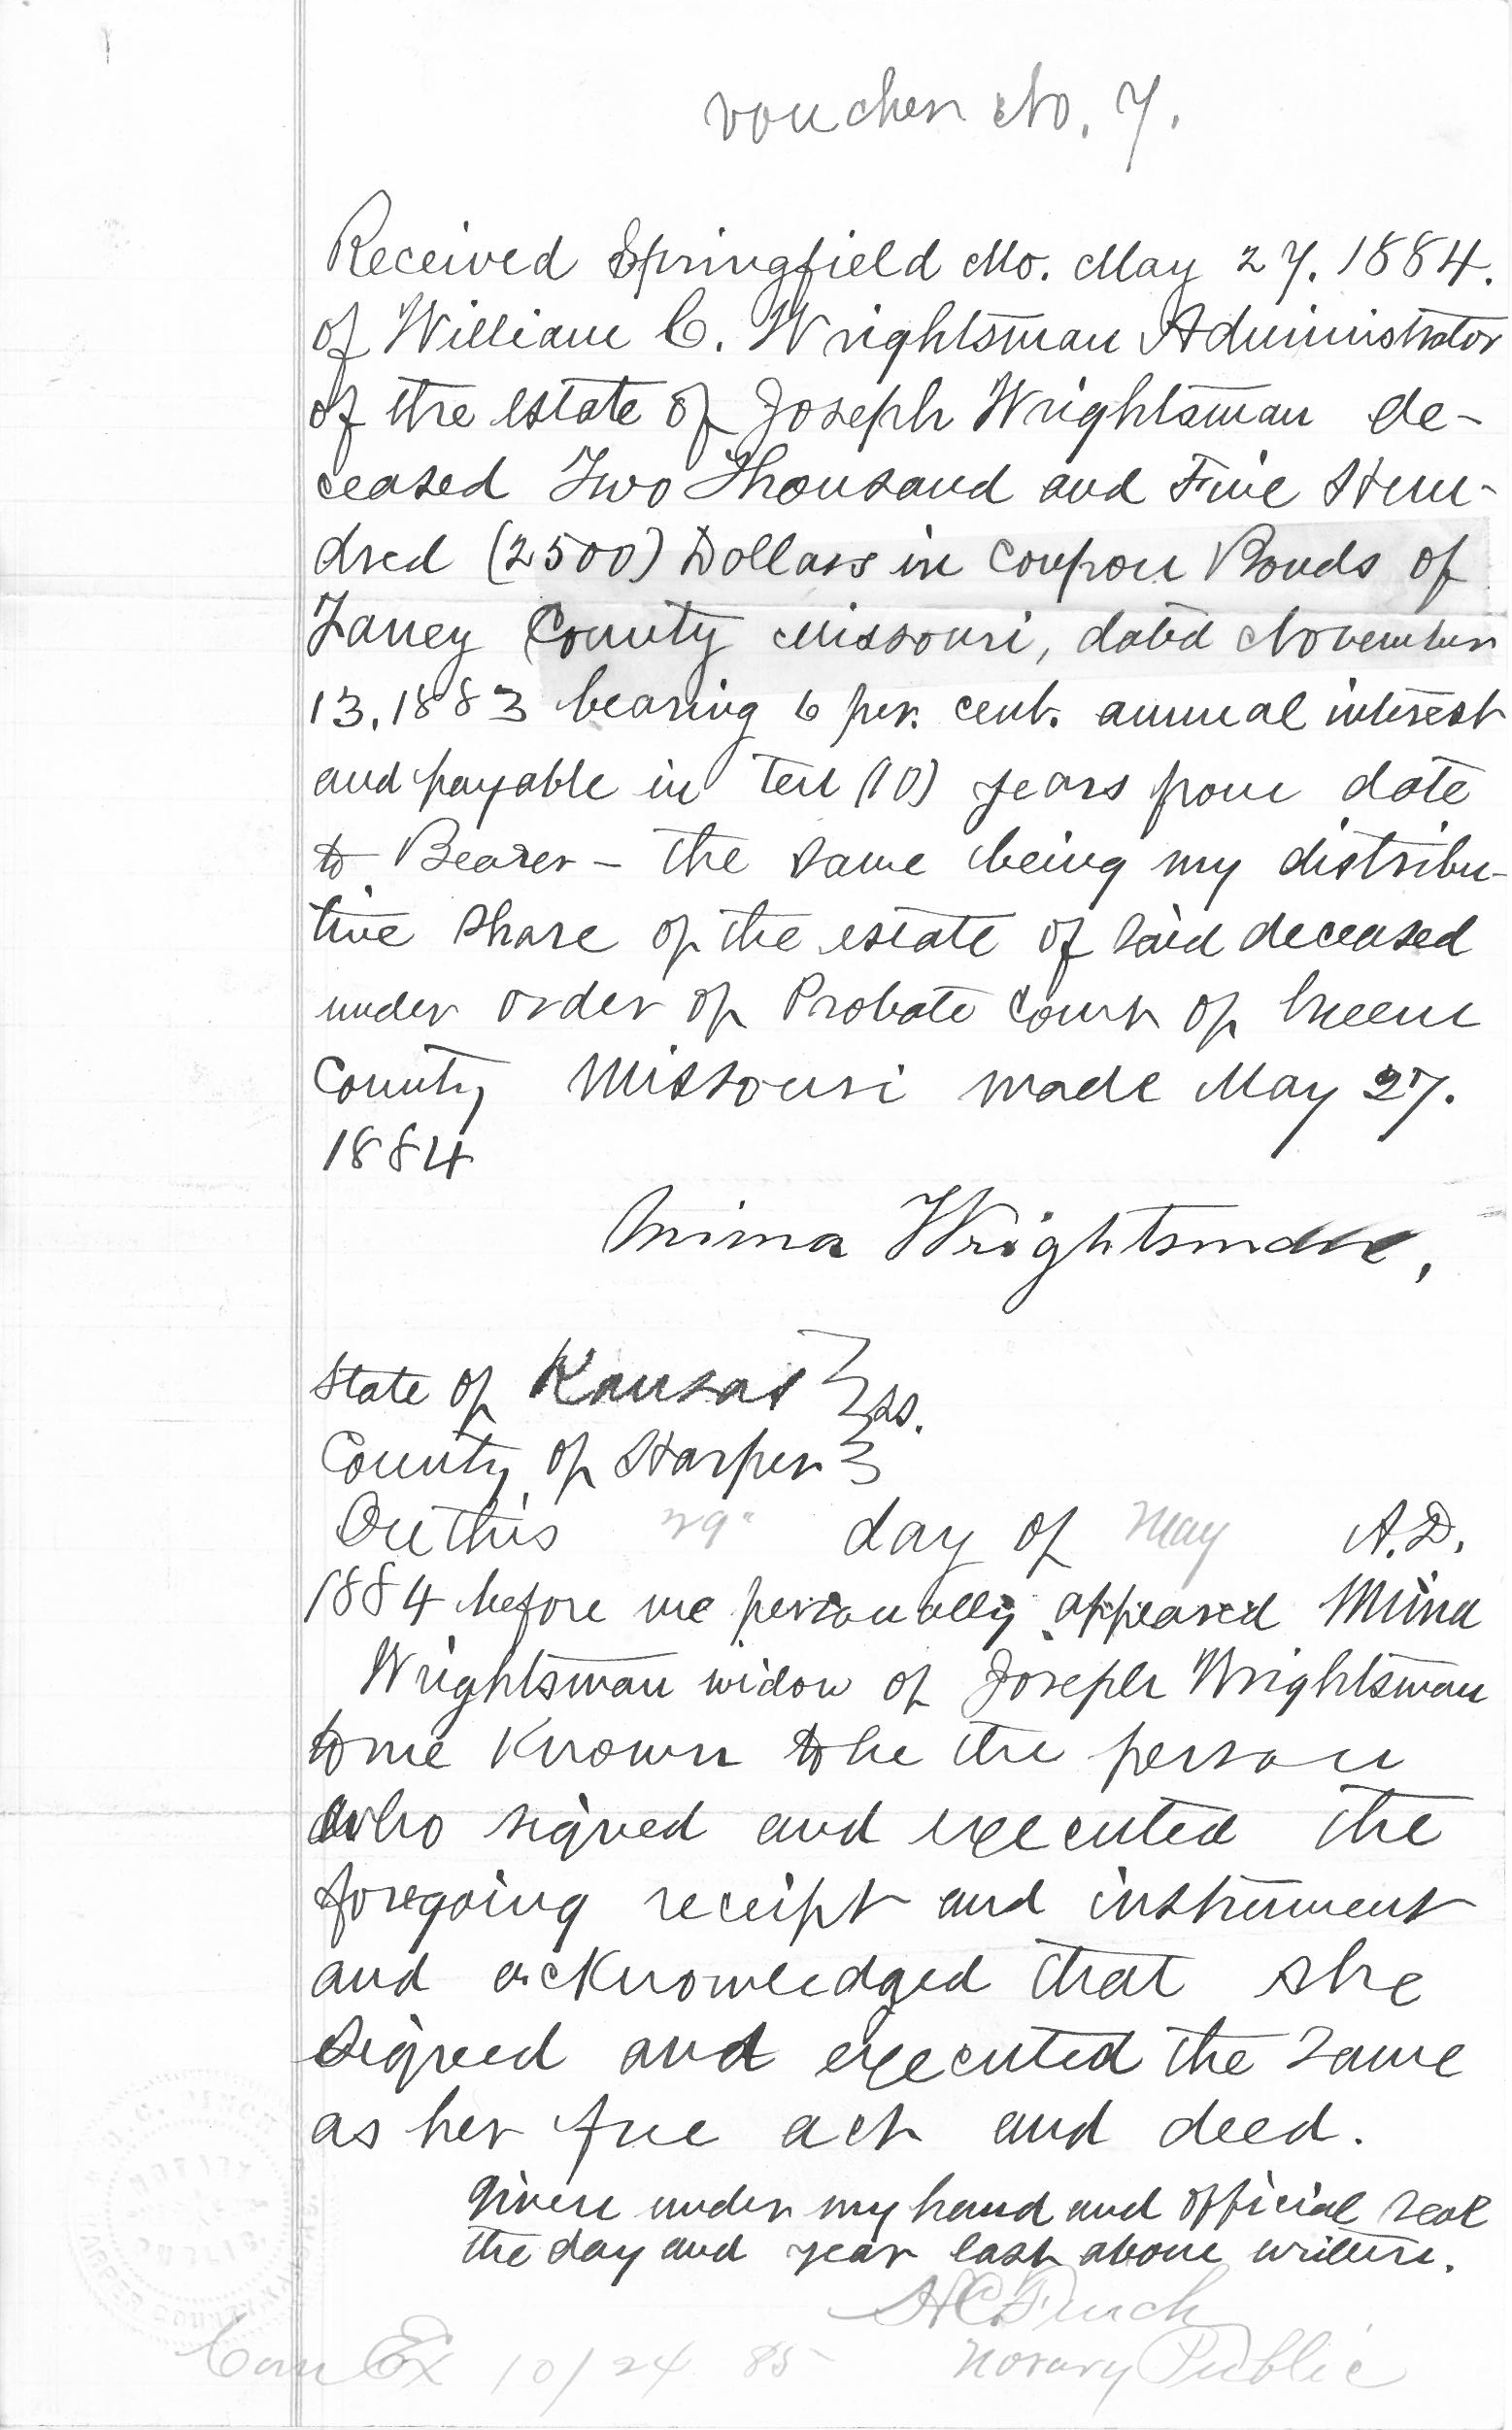 Voucher No. 7.
Received Springfield Mo. May 27. 1884.
of William C. Wrightsman Administrator
of the estate of Joseph Wrightsman de-
ceased Two Thousand and Five Hun-
dred (2500) Dollars in Coupon Bonds of
Taney County Missouri, dated November
13, 1883 bearing 6 per. cent. annual interest
and payable in ten (10) years from date
to Bearer - the same being my distribu-
tive share of the estate of said deceased
under order of Probate Court of Greene
County Missouri made May 27.
1884
Mima Wrightsman,
State of Kansas } ss.
County of Harper }
On this 29" day of May A.D.
1884 before me personally appeared Mima
Wrightsman widow of Joseph Wrightsman
to me known to be the person
who signed and executed the
foregoing receipt and instrument
and acknowledged that she
signed and executed the same
as her free act and deed.
Given under my hand and official seal
the day and year last above written.
H.C. Finch
Com Ex 10/24 85 Notary Public